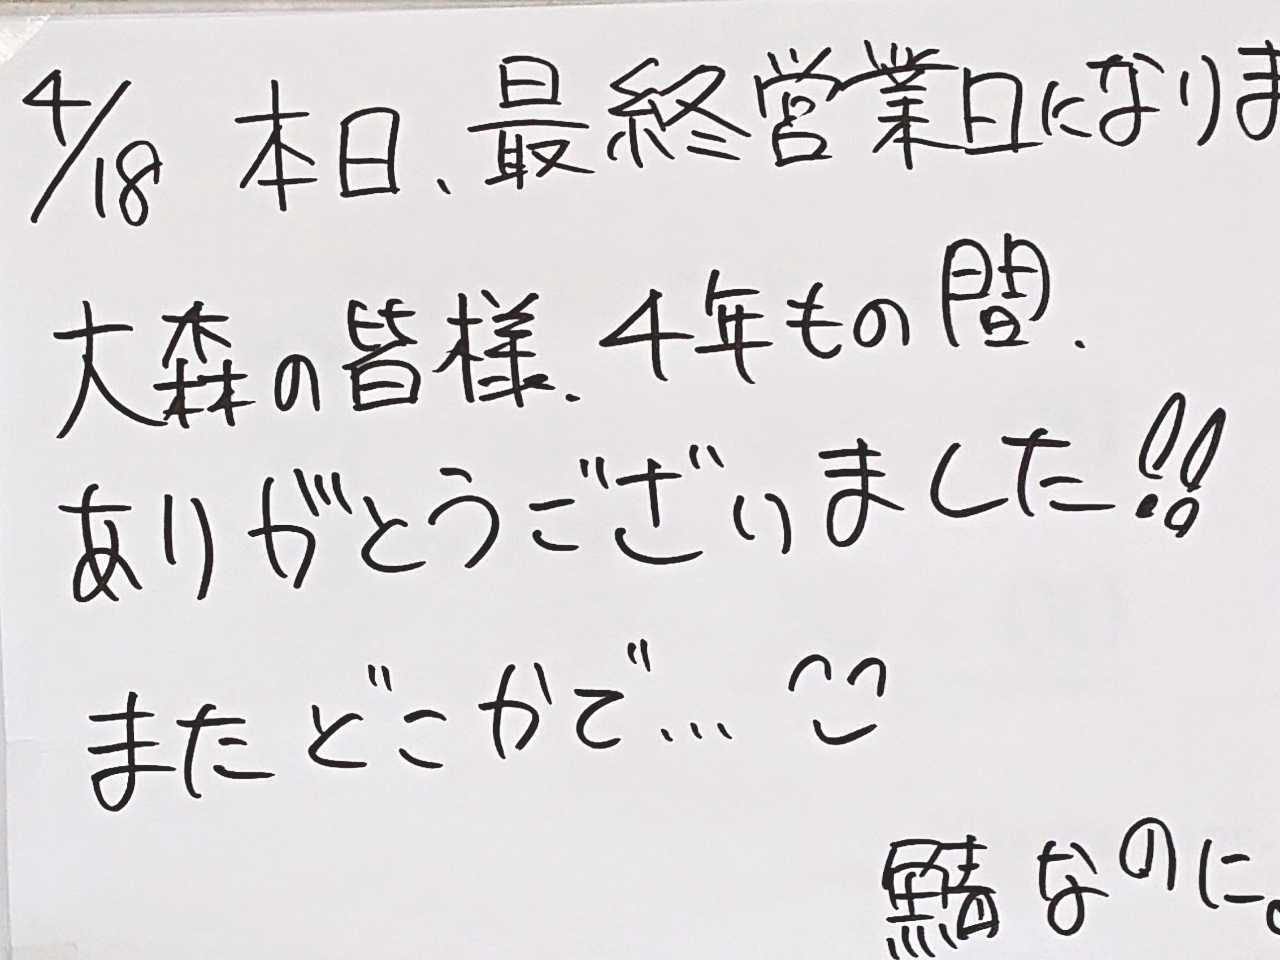 4/18 本日、最終営業日になりま
大森の皆様、4年もの間、
ありがとうございました!!
またどこかで…
鯖なのに。